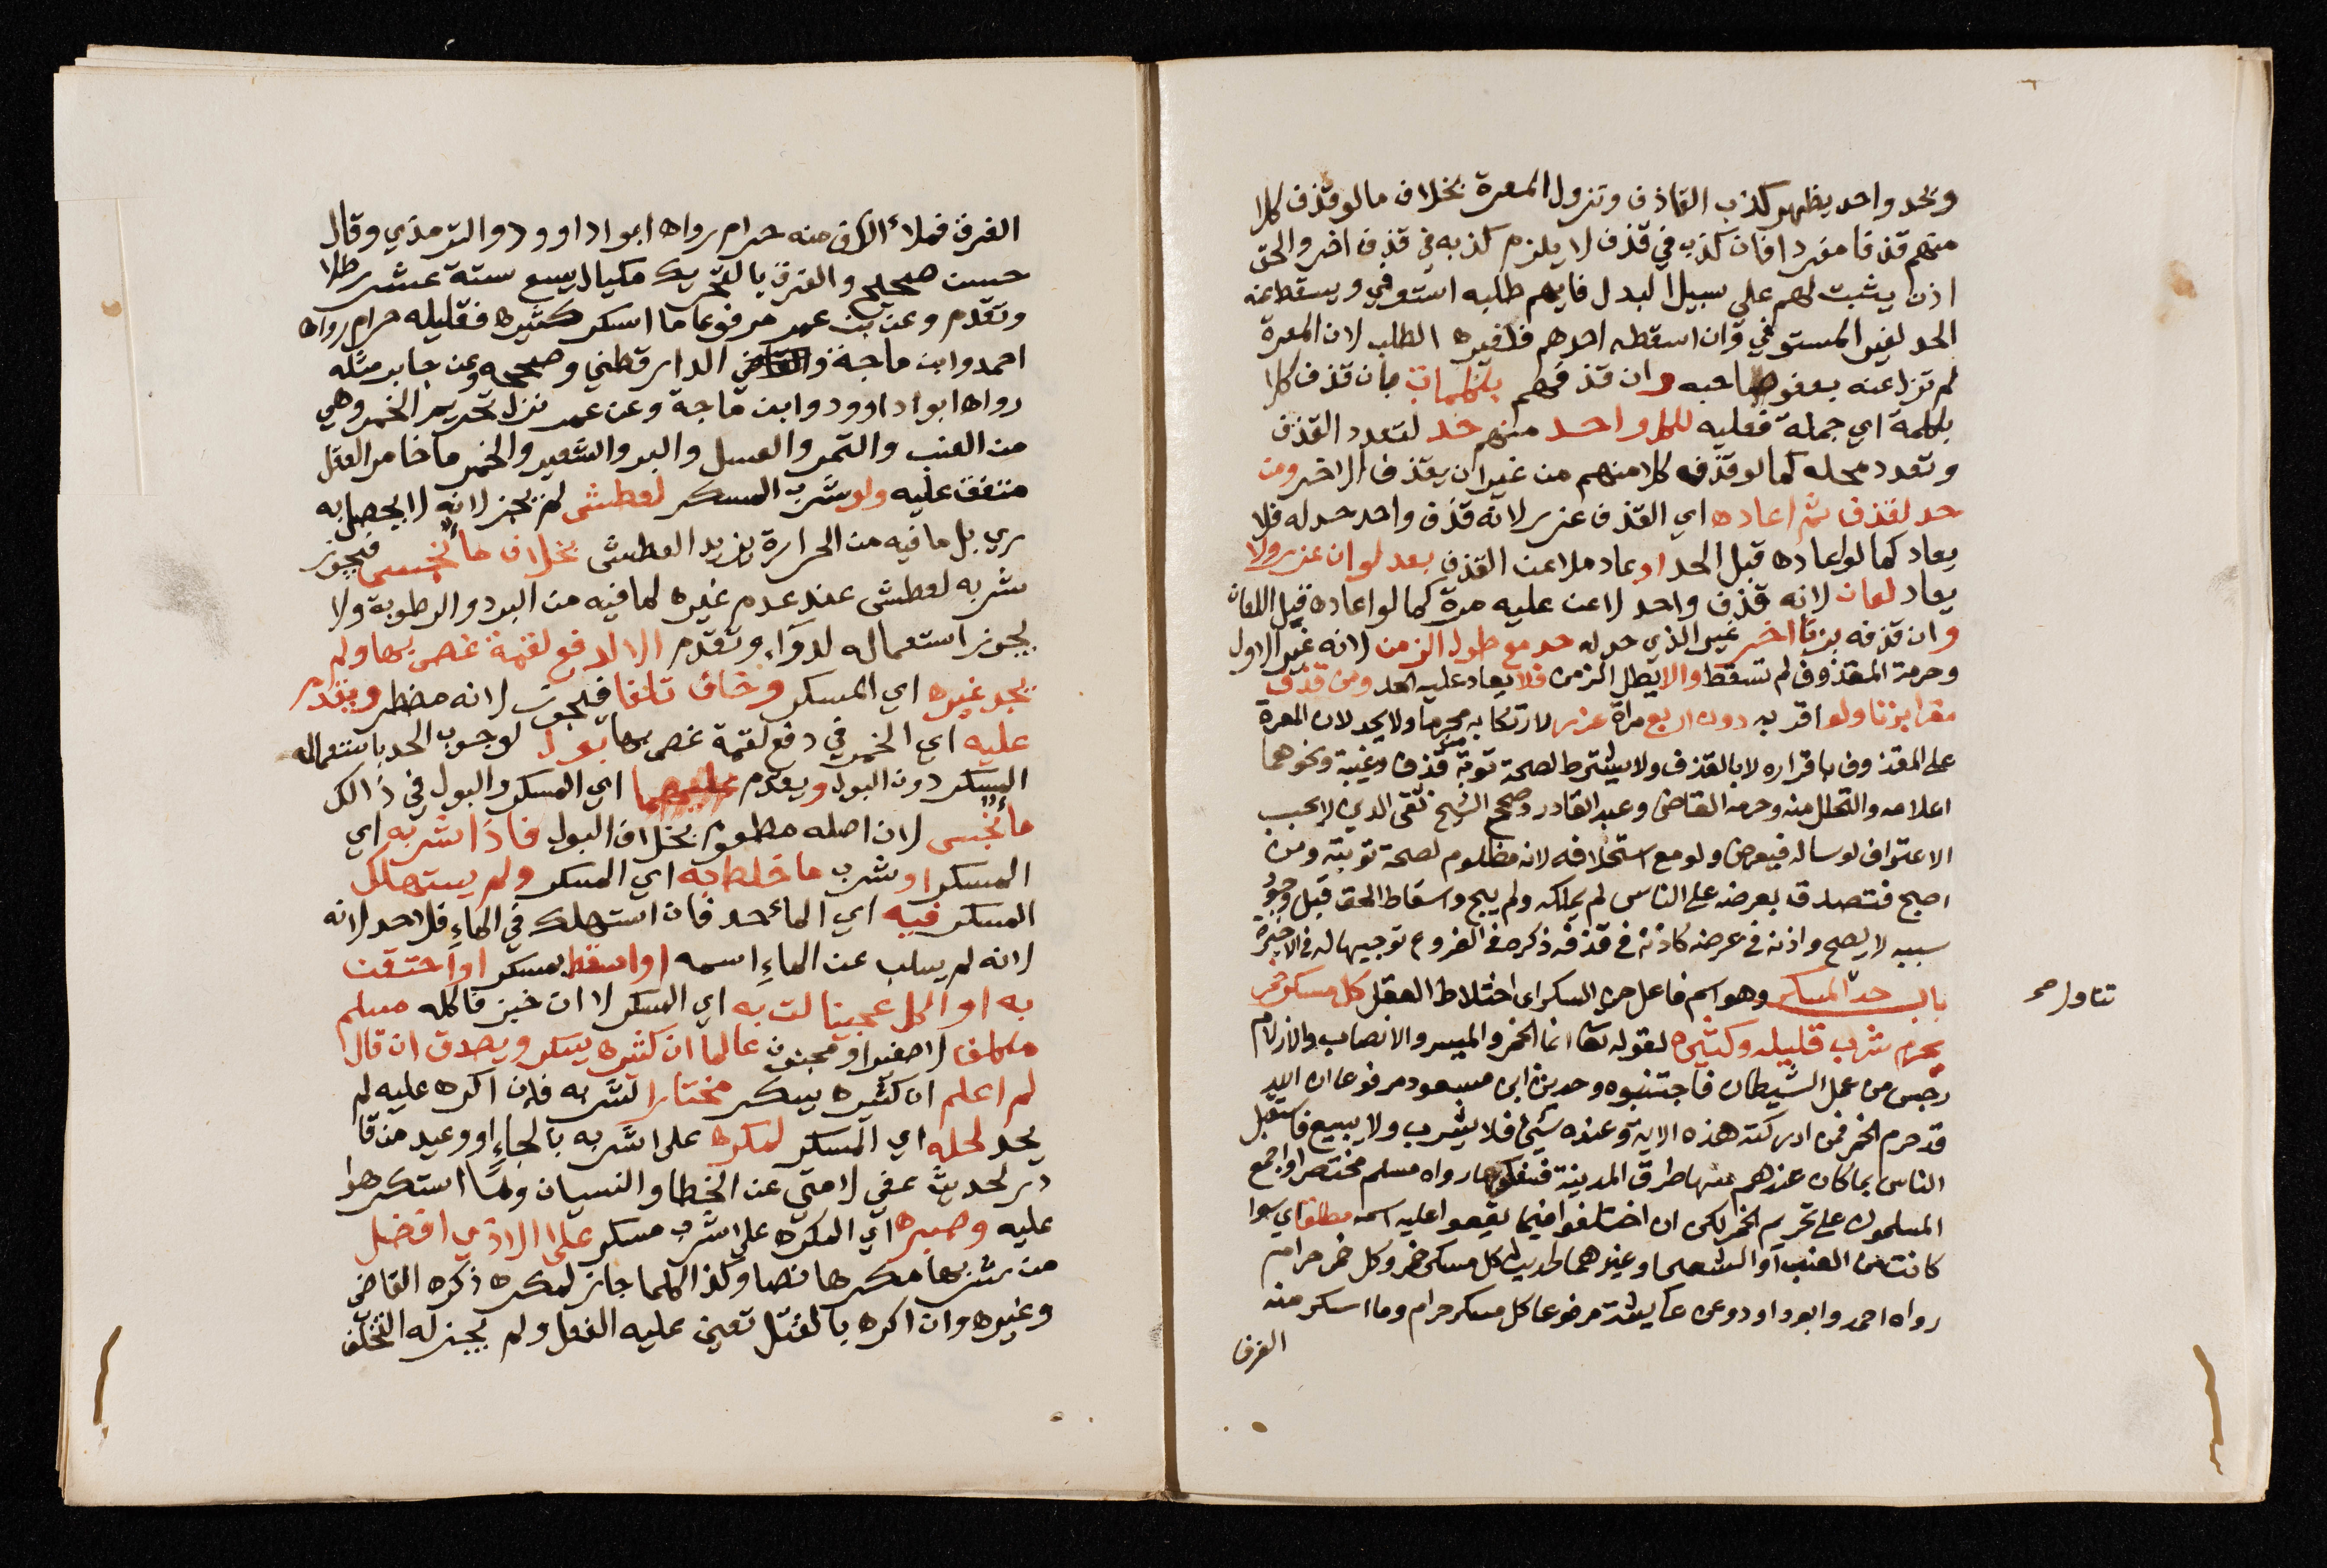 وبحد واحد يظهر كذب القاذف وتزول المعرة بخلاف ما لو قذف كلا
منهم قذفا مفردا فان كذب في قذف لا يلزم كذبه في قذف اخر والحق
اذن يثبت لهم على سبيل البدل فايهم طلبه استوفي ويسقط عنه
الحد لغير المستوفي وان اسقطه احدهم فلغيره الطلب لان المعرة
لم تزل عنه بعفو صاحبه وان قذفهم بكلمات بان قذف كلا
بكلمة اي جملة فعليه لكل واحد منهم حد لتعدد القذف
وتعدد محله كما لو قذفه كلا منهم من غير ان يقذف الاخر ومن
حد لقذف ثم اعاده اي القذف عزر لانه قذف واحد حد له فلا
يعاد كما لو اعاده قبل الحد او عاد ملاعن القذف بعد لعان عزر ولا
يعاد لعان لانه قذف واحد لاعن عليه مرة كما لو اعاده قبل اللعان
وان قذفه بزنا اخر غير الذي حد له حد مع طول الزمن لانه غير الاول
وحرمة المقذوف لم تسقط والا يطل الزمن فلا يعاد عليه الحد ومن قذف
مقرا بزنا ولو اقر به دون اربع مراة عزر لارتكابه محرما ولا يحد لان المعرة
على المقذوف باقراره لا بالقذف ولا يشترط لصحة توبة من قذف وغيبة ونحوهما
اعلامه والتحلل منه وحرمه القاضي وعبد القادر وصحح الشيخ تقي الدين لا يجب
الاعتراف لو ساله فيعرض ولو مع استحلافه لانه مظلوم لصحة توبته ومن
اصبح فتصدق بعرضه على الناس لم يملكه ولم يبح واسقاط الحق قبل وجود
سببه لا يصح واذنه في عرضه كاذنه في قذفه ذكره في الفروع توجيها له في الاخيرة
باب حد المسكر وهو اسم فاعل من السكر اي اختلاط العقل كل مسكر خمر
يحرم شرب قليله وكثيره لقوله تعا انما الخمر والميسر والانصاب والازلام
رجس من عمل الشيطان فاجتنبوه وحديث ابن مسعود مرفوعا ان الله
قد حرم الخمر فمن ادركته هذه الاية وعنده شيئ فلا يشرب ولا يبيع فاستقبل
الناس بما كان عندهم منها طرق المدينة فسفكوها رواه مسلم مختصرا واجمع
المسلمون على تحريم الخمر لكن ان اختلفوا فيما يقع عليه اسمه مطلقا اي سوا
كانت من العنب او الشعير او غيرهما لحديث كل مسكر خمر وكل خمر حرام
رواه احمد وابو داود وعن عايشة مرفوعا كل مسكر حرام وما اسكر منه
الفرق
تناول صح
الفرق فملأ الكف منه حرام رواه ابوا داوود والترمذي وقال
حسن صحيح والفرق بالتحريك مكيال يسع ستة عشر رطلا
وتقدم وعن بن عمر مرفوعا ما اسكر كثيره فقليله حرام رواه
احمد وابن ماجة والدارقطني وصححه وعن جابر مثله
رواه ابوا داوود وابن ماجة وعن عمر نزل تحريم الخمر وهي
من العنب والتمر والعسل والبر والشعير والخمر ما خامر العقل
متفق عليه ولو شرب المسكر لعطش لم يجز لانه لا يحصل به
ري بل ما فيه من الحرارة يزيد العطش بخلاف ماء نجس فيجوز
شربه لعطش عند عدم غيره لما فيه من البرد والرطوبة ولا
يجوز استعماله لدواء وتقدم الا لدفع لقمة غص بها ولم
يجد غيره اي المسكر وخاف تلفا فيجوز لانه مضطر ويقدم
عليه اي الخمر في دفع لقمة غص بها بول لوجوب الحد باستعماله
المسكر دون البول ويقدم عليهما اي المسكر والبول في ذالك
ماء نجس لان اصله مطعوم بخلاف البول فاذا شربه اي
المسكر او شرب ما خلط به اي المسكر ولم يستهلك
المسكر فيه اي الماء حد فان استهلك في الماء فلا حد لانه
لانه لم يسلب عن الماء اسمه او استعط بمسكر او احتقن
به او اكل عجينا لت به اي المسكر لا ان خبز فاكله مسلم
مكلف لا صغير او مجنون عالما ان كثيره يسكر ويصدق ان قال
لم اعلم ان كثيره يسكر مختارا لشربه فان اكره عليه لم
يحد لحله اي المسكر لمكره على شربه بالجاء او وعيد من قا
در لحديث عفي لامتي عن الخطا والنسيان وما استكرهوا
عليه وصبره اي المكره على شرب مسكر على الاذي افضل
من شربها مكرها نصا وكذا كلما جاز لمكره ذكره القاضي
وغيره وان اكره بالقتل تعين عليه الفعل ولم يجز له التخلف